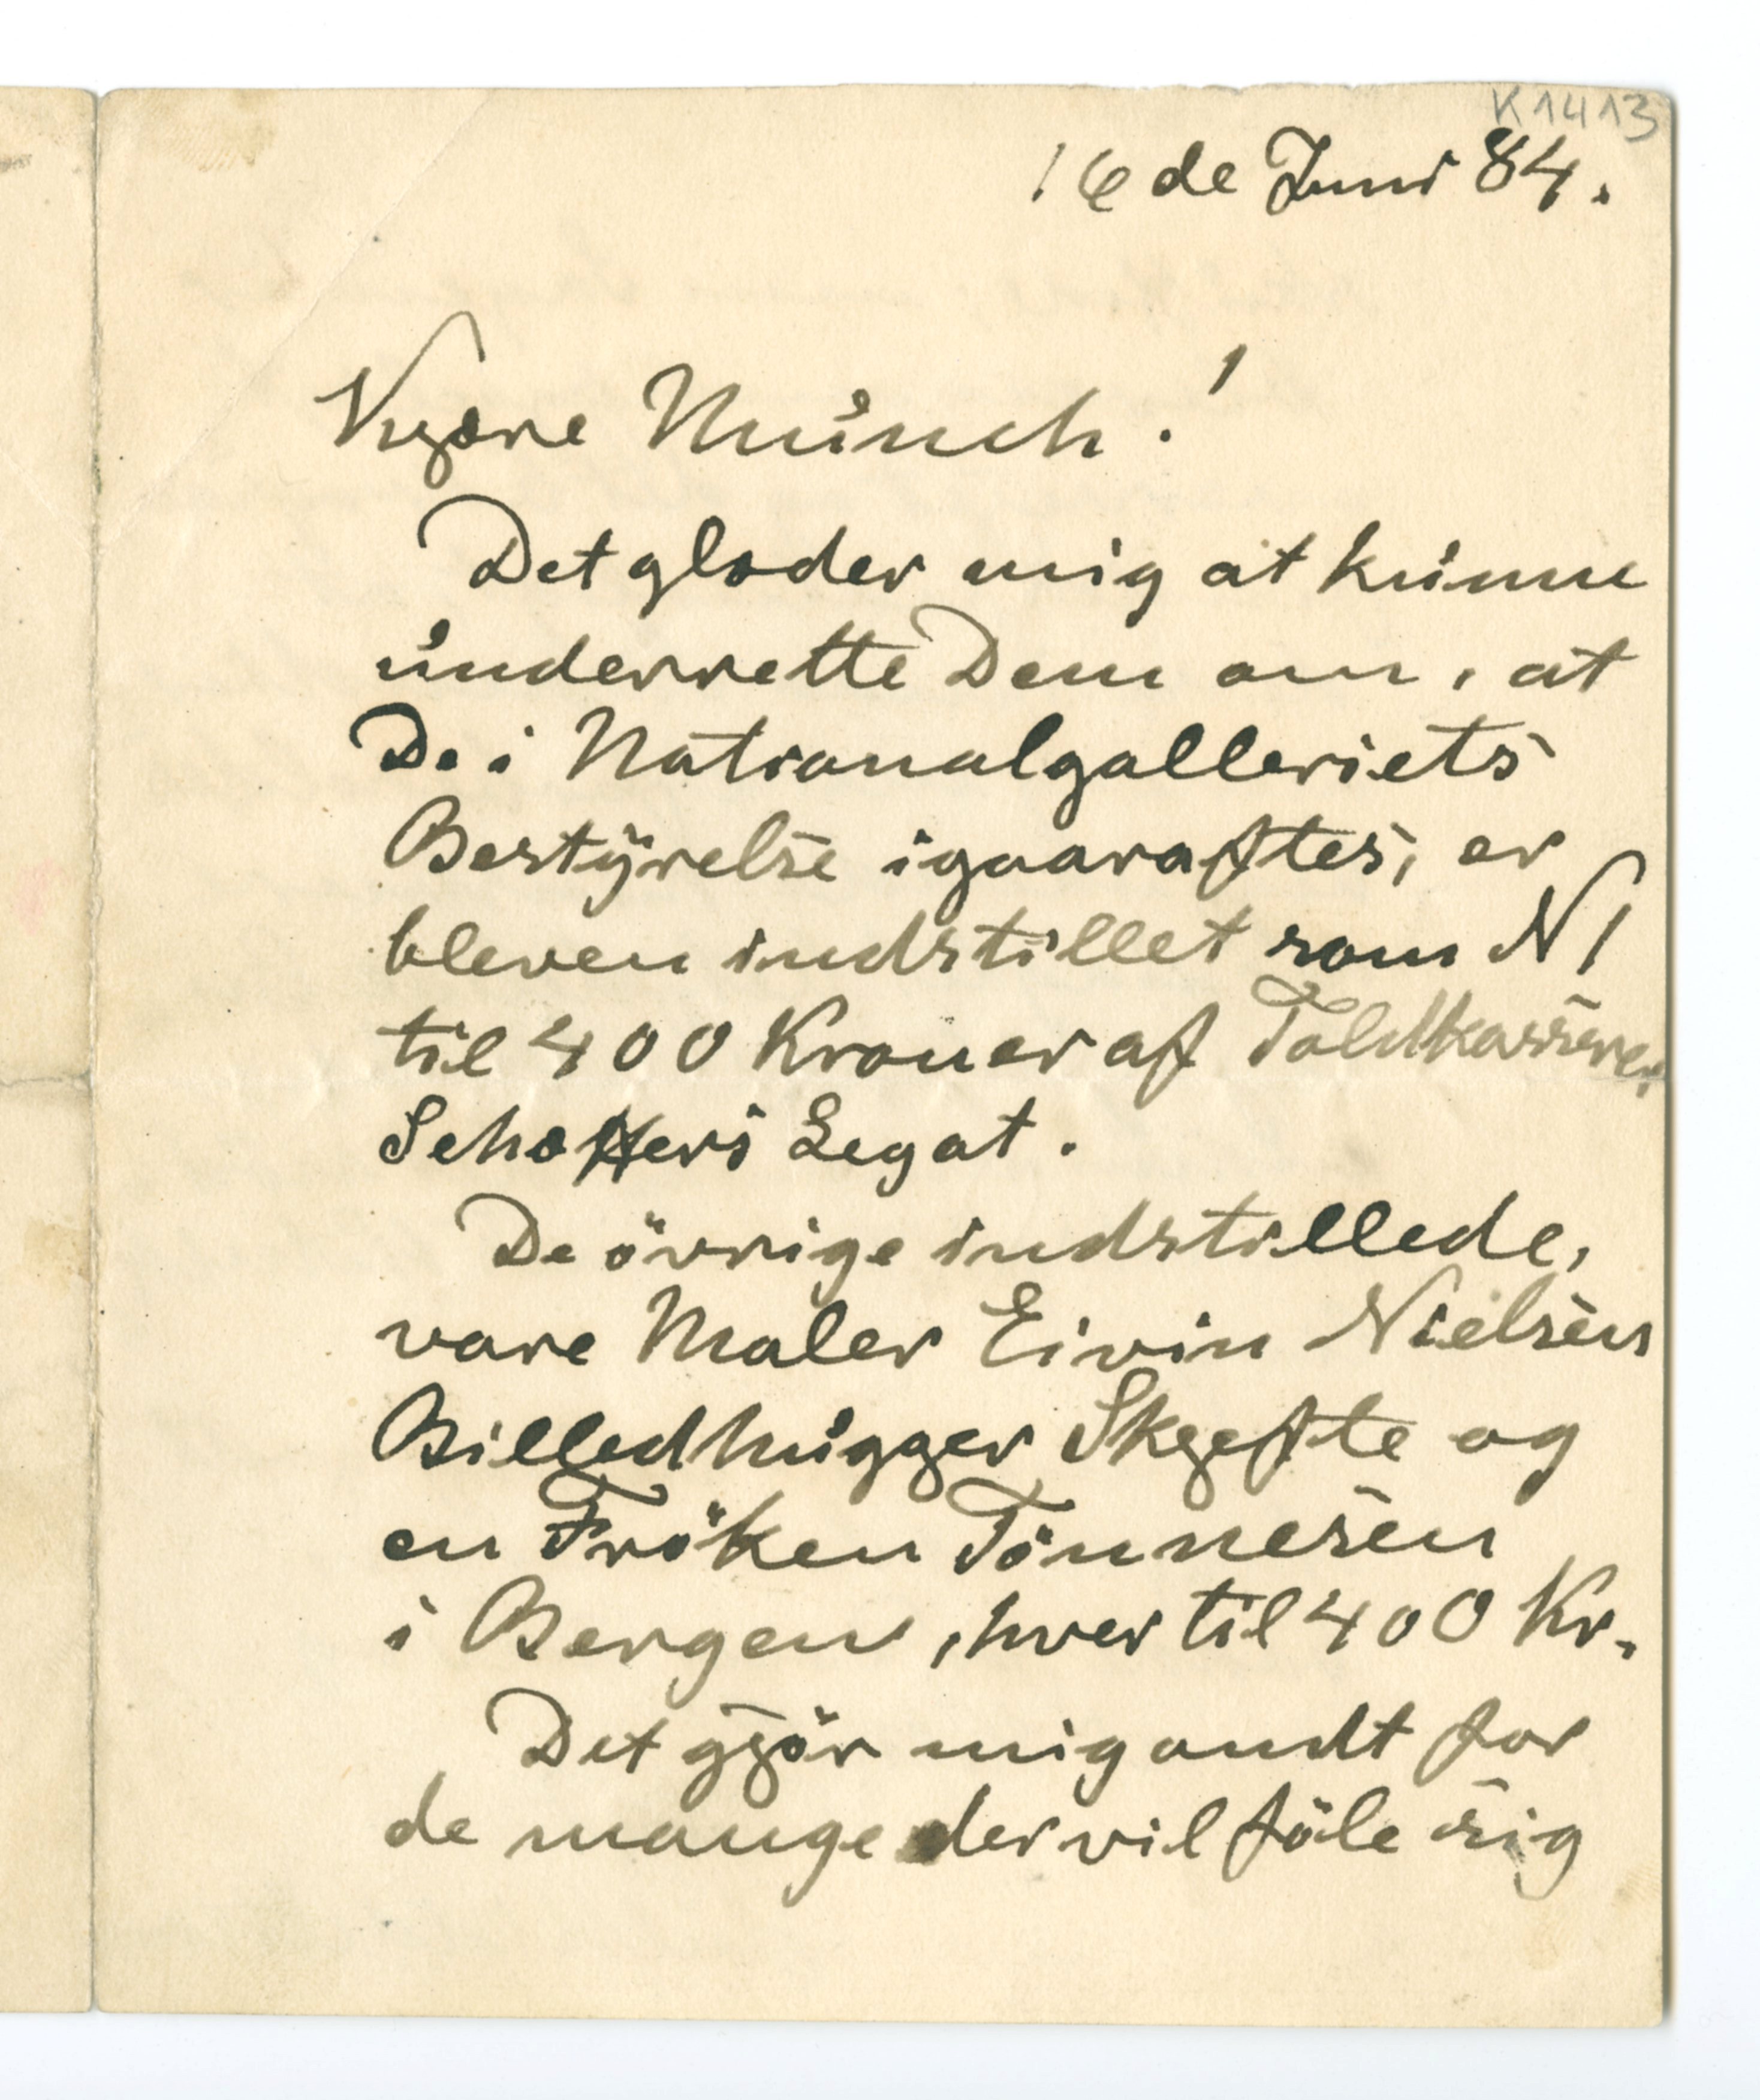 K1413
16de Juni 84.
Kjære Munch!
Det glæder mig at kunne
underrette Dem om, at
De i Nationalgalleriets
Bestÿrelse igaaraftes, er
bleven indstillet som N 1
til 400 Kroner af Toldkasserer
Schäffers Legat.
De övrige indstillede,
vare Maler Eivin Nielsen
Billedhugger Skjefte og
en Fröken Tönnesen
i Bergen, hver til 400 Kr.
Det gjör mig ondt for
de mange der vil föle sig